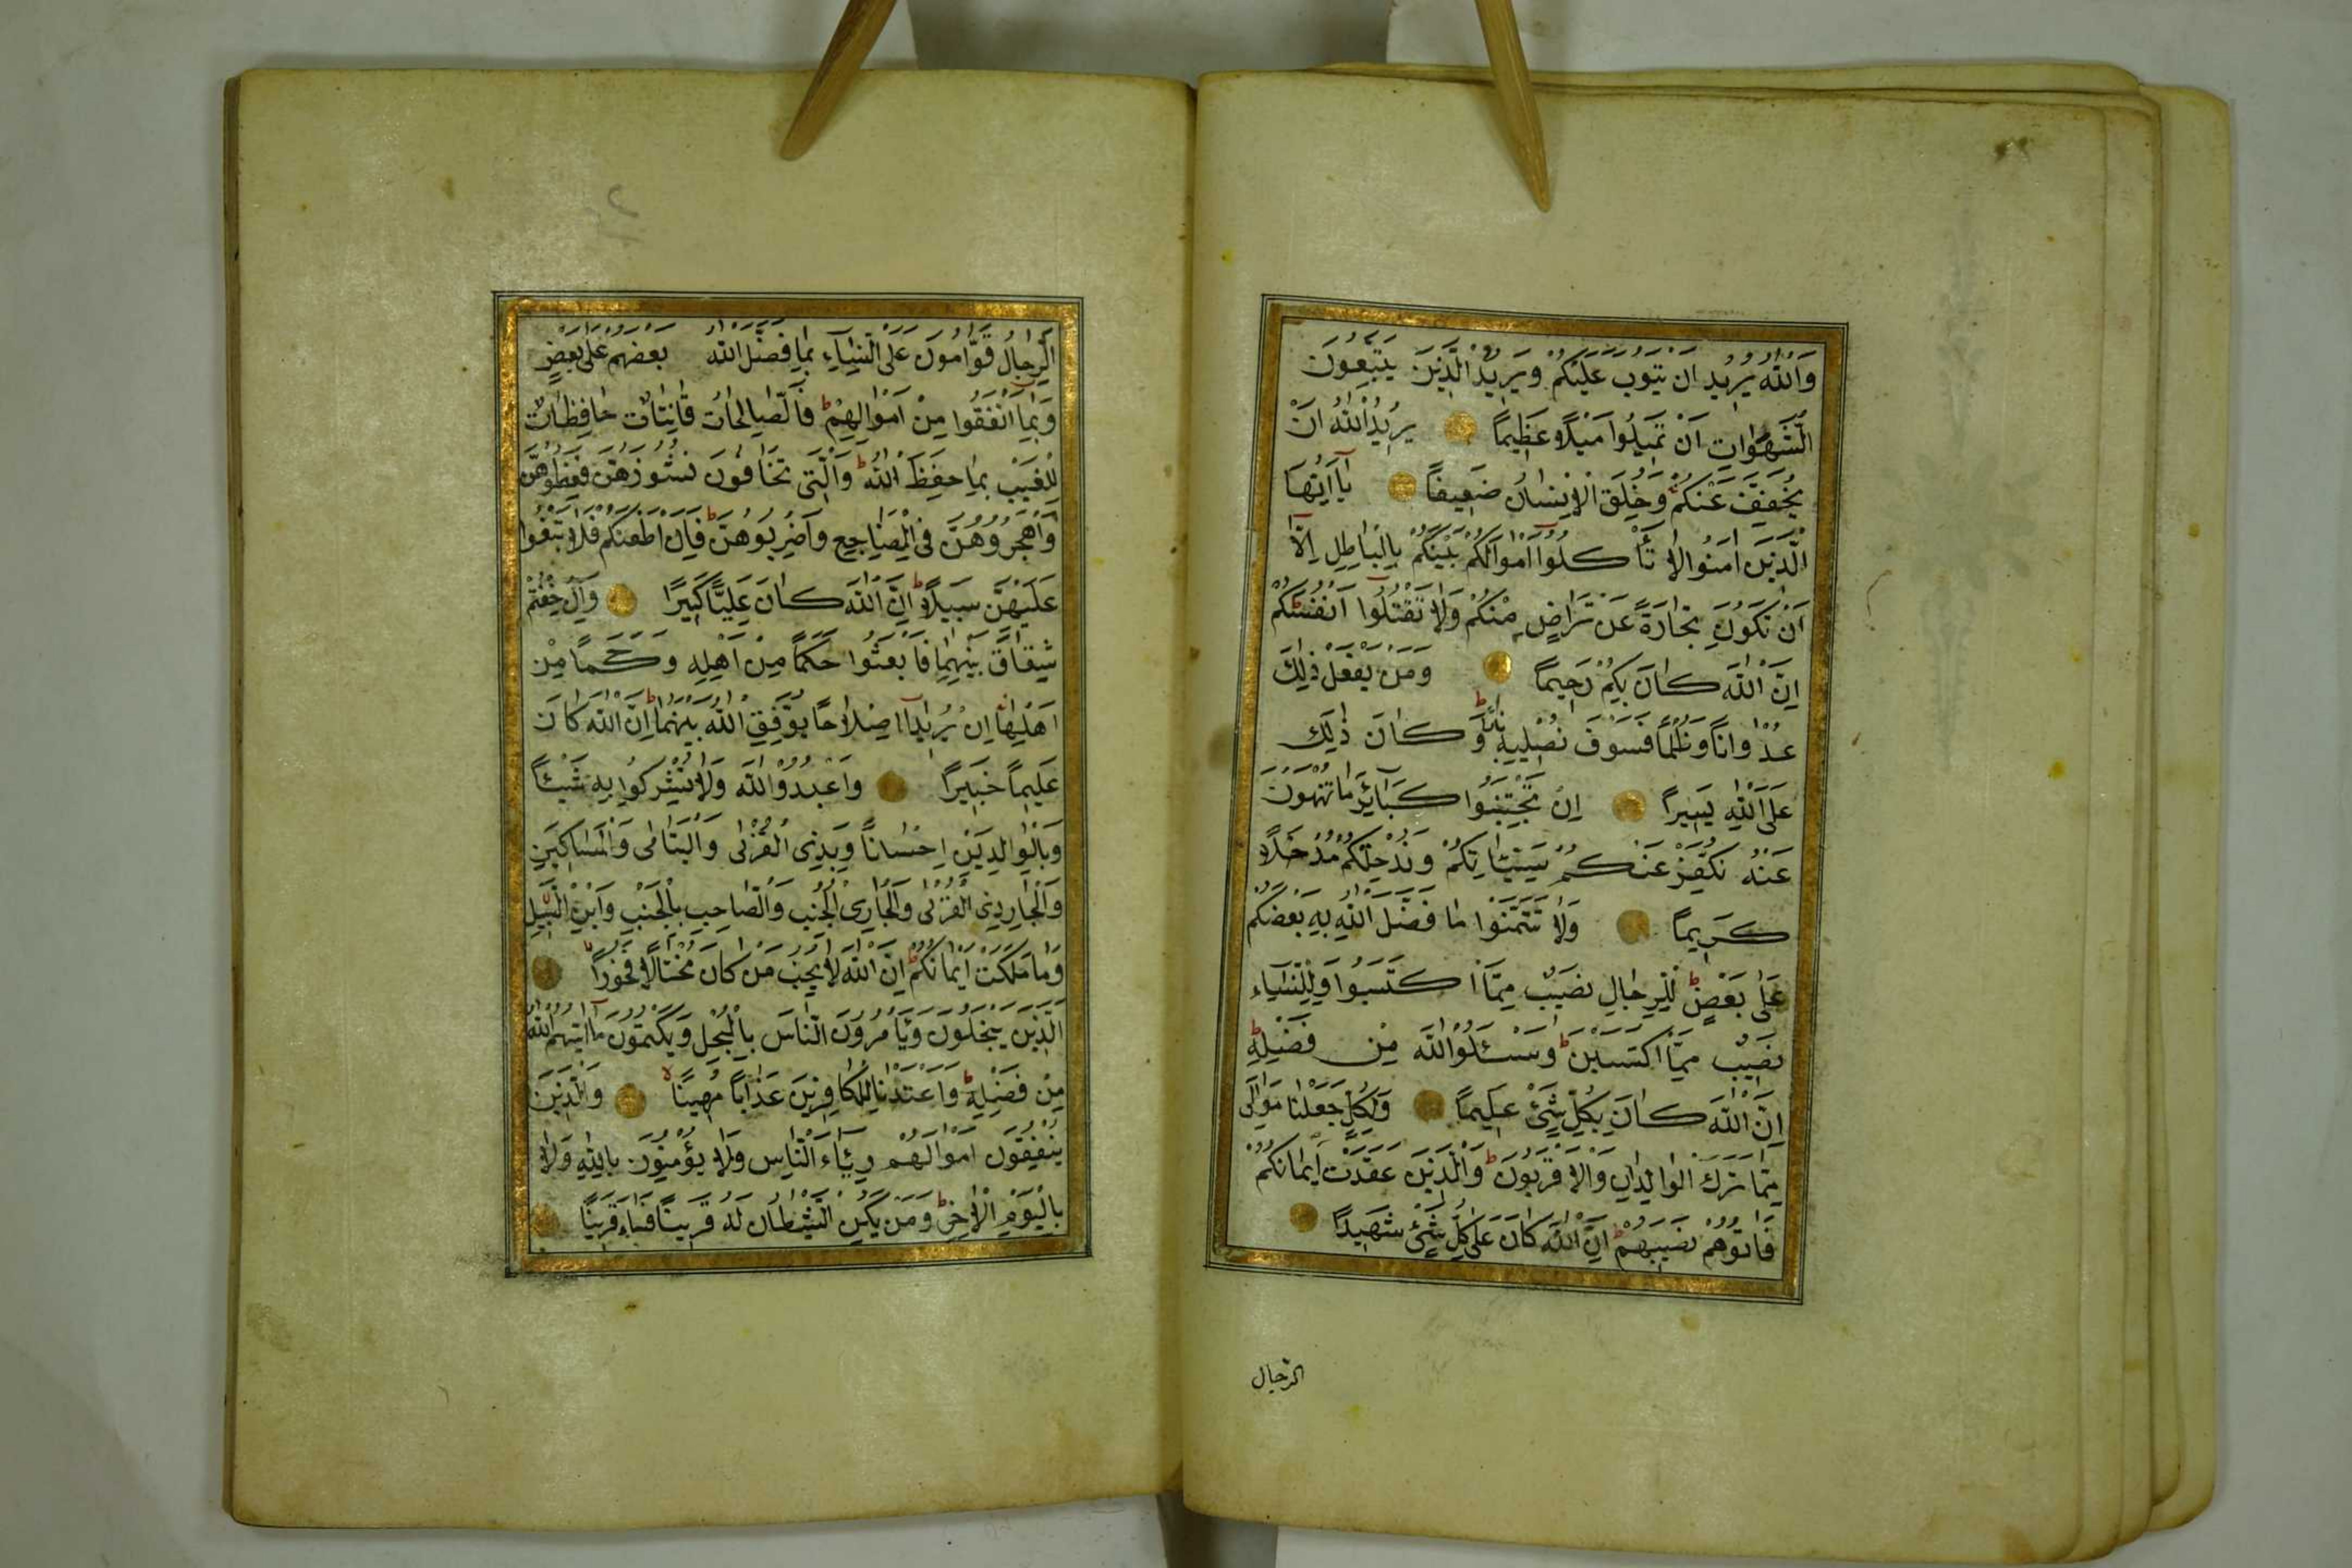 وَاللّٰهُ يُرِيدُ اَنْ يَتُوبَ عَلَيْكُمْ وَيُرِيدُ الَّذِينَ يَتَّبِعُونَ
الشَّهَوَاتِ اَنْ تَمِيلُوا مَيْلًا عَظِيمًا يُرِيدُ اللّٰهُ اَنْ
يُخَفِّفَ عَنْكُمْ وَخُلِقَ الْاِنْسَانُ ضَعِيفًا يَا اَيُّهَا
الَّذِينَ اٰمَنُوا لَا تَأْكُلُوا اَمْوَالَكُمْ بَيْنَكُمْ بِالْبَاطِلِ اِلَّا
اَنْ تَكُونَ تِجَارَةً عَنْ تَرَاضٍ مِنْكُمْ وَلَا تَقْتُلُوا اَنْفُسَكُمْ
اِنَّ اللّٰهَ كَانَ بِكُمْ رَحِيمًا وَمَنْ يَفْعَلْ ذٰلِكَ
عُدْوَانًا وَظُلْمًا فَسَوْفَ نُصْلِيهِ نَارًا وَكَانَ ذٰلِكَ
عَلَى اللّٰهِ يَسِيرًا اِنْ تَجْتَنِبُوا كَبَائِرَ مَا تُنْهَوْنَ
عَنْهُ نُكَفِّرْ عَنْكُمْ سَيِّئَاتِكُمْ وَنُدْخِلْكُمْ مُدْخَلًا
كَرِيمًا وَلَا تَتَمَنَّوْا مَا فَضَّلَ اللّٰهُ بِهِ بَعْضَكُمْ
عَلٰى بَعْضٍ لِلرِّجَالِ نَصِيبٌ مِمَّا اكْتَسَبُوا وَلِلنِّسَاءِ
نَصِيبٌ مِمَّا اكْتَسَبْنَ وَسْـَٔلُوا اللّٰهَ مِنْ فَضْلِهِ
اِنَّ اللّٰهَ كَانَ بِكُلِّ شَيْءٍ عَلِيمًا وَلِكُلٍّ جَعَلْنَا مَوَالِيَ
مِمَّا تَرَكَ الْوَالِدَانِ وَالْاَقْرَبُونَ وَالَّذِينَ عَقَدَتْ اَيْمَانُكُمْ
فَاٰتُوهُمْ نَصِيبَهُمْ اِنَّ اللّٰهَ كَانَ عَلٰى كُلِّ شَيْءٍ شَهِيدًا
الرجال
اَلرِّجَالُ قَوَّامُونَ عَلَى النِّسَاءِ بِمَا فَضَّلَ اللّٰهُ بَعْضَهُمْ عَلٰى بَعْضٍ
وَبِمَا اَنْفَقُوا مِنْ اَمْوَالِهِمْ فَالصَّالِحَاتُ قَانِتَاتٌ حَافِظَاتٌ
لِلْغَيْبِ بِمَا حَفِظَ اللّٰهُ وَالّٰتِي تَخَافُونَ نُشُوزَهُنَّ فَعِظُوهُنَّ
وَاهْجُرُوهُنَّ فِي الْمَضَاجِعِ وَاضْرِبُوهُنَّ فَاِنْ اَطَعْنَكُمْ فَلَا تَبْغُوا
عَلَيْهِنَّ سَبِيلًا اِنَّ اللّٰهَ كَانَ عَلِيًّا كَبِيرًا وَاِنْ خِفْتُمْ
شِقَاقَ بَيْنِهِمَا فَابْعَثُوا حَكَمًا مِنْ اَهْلِهِ وَحَكَمًا مِنْ
اَهْلِهَا اِنْ يُرِيدَا اِصْلَاحًا يُوَفِّقِ اللّٰهُ بَيْنَهُمَا اِنَّ اللّٰهَ كَانَ
عَلِيمًا خَبِيرًا وَاعْبُدُوا اللّٰهَ وَلَا تُشْرِكُوا بِهِ شَيْئًا
وَبِالْوَالِدَيْنِ اِحْسَانًا وَبِذِي الْقُرْبٰى وَالْيَتَامٰى وَالْمَسَاكِينِ
وَالْجَارِ ذِي الْقُرْبٰى وَالْجَارِ الْجُنُبِ وَالصَّاحِبِ بِالْجَنْبِ وَابْنِ السَّبِيلِ
وَمَا مَلَكَتْ اَيْمَانُكُمْ اِنَّ اللّٰهَ لَا يُحِبُّ مَنْ كَانَ مُخْتَالًا فَخُورًا
اَلَّذِينَ يَبْخَلُونَ وَيَأْمُرُونَ النَّاسَ بِالْبُخْلِ وَيَكْتُمُونَ مَا اٰتٰيهُمُ اللّٰهُ
مِنْ فَضْلِهِ وَاَعْتَدْنَا لِلْكَافِرِينَ عَذَابًا مُهِينًا وَالَّذِينَ
يُنْفِقُونَ اَمْوَالَهُمْ رِئَاءَ النَّاسِ وَلَا يُؤْمِنُونَ بِاللّٰهِ وَلَا
بِالْيَوْمِ الْاٰخِرِ وَمَنْ يَكُنِ الشَّيْطَانُ لَهُ قَرِينًا فَسَاءَ قَرِينًا